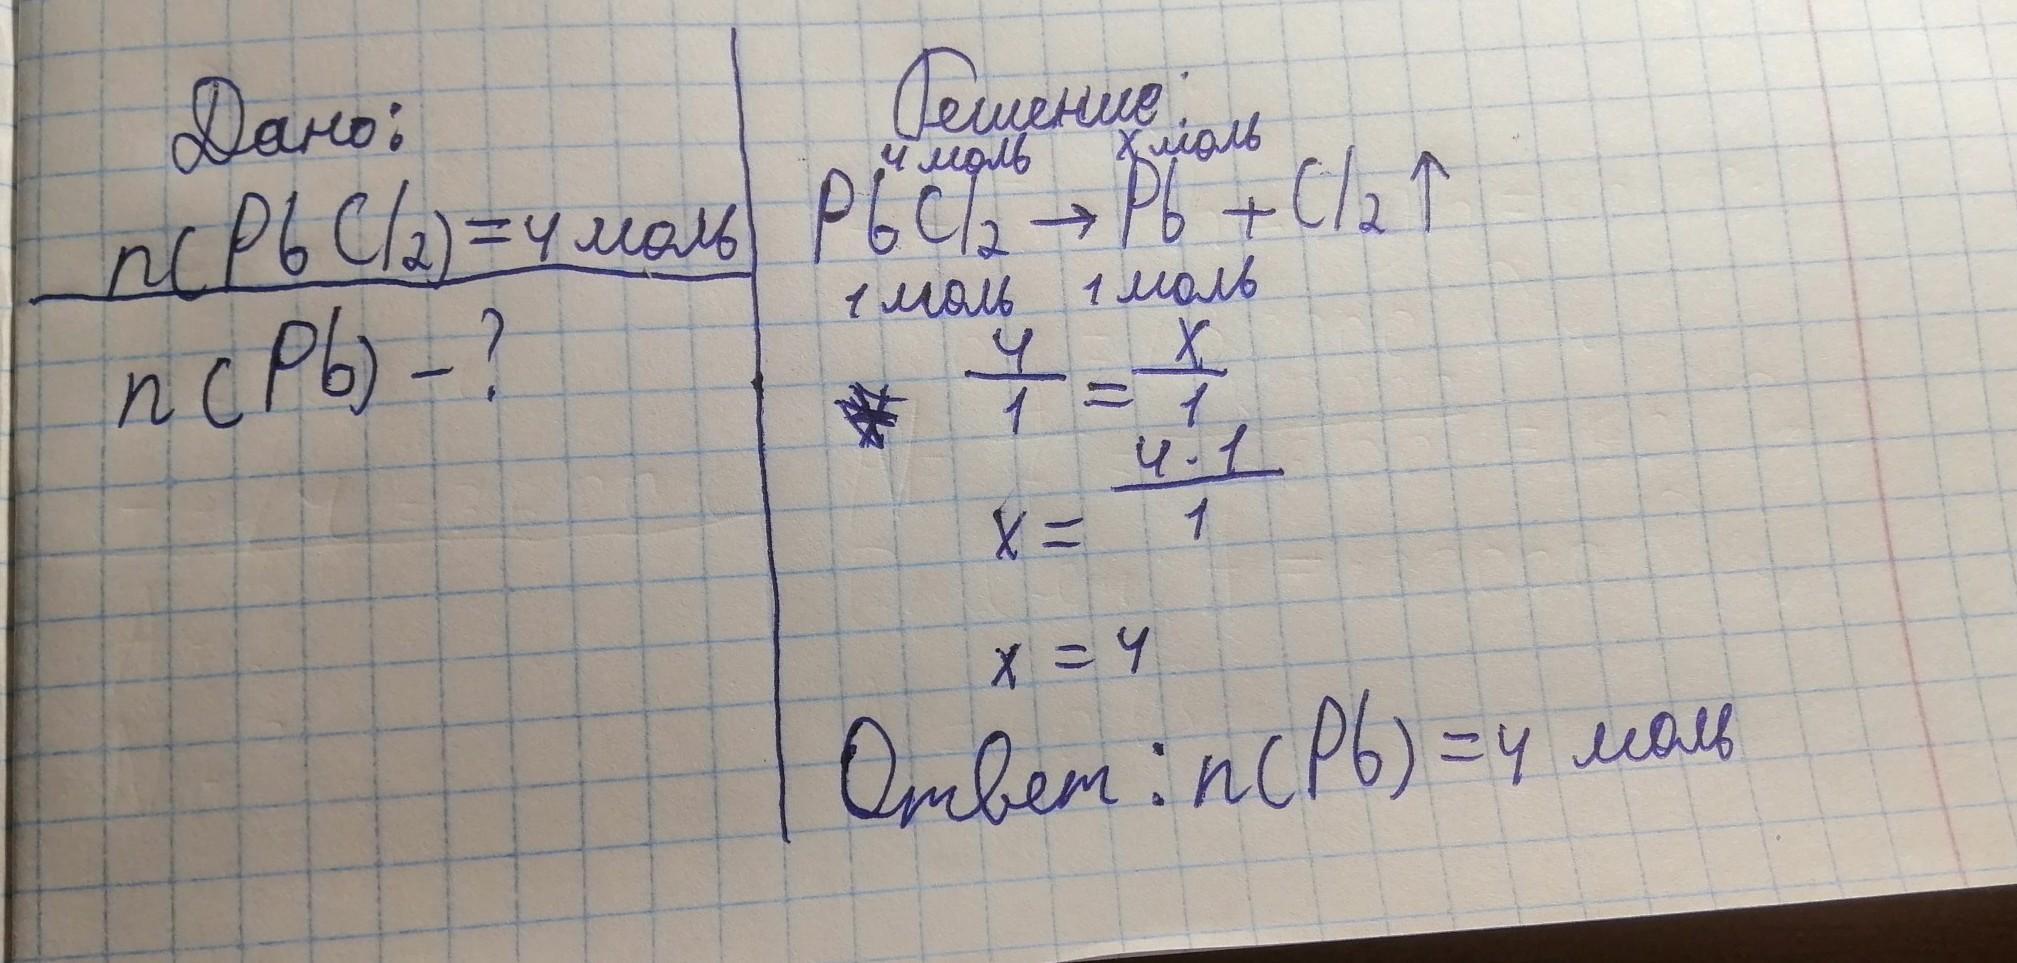 Дано:
n(PbCl2)=4 моль
n(Pb) - ?
Решение:
4 моль х моль
PbCl2 → Pb + Cl2↑
1 моль 1 моль
4/1 = x/1
x = 4·1/1
x = 4
Ответ: n(Pb) = 4 моль